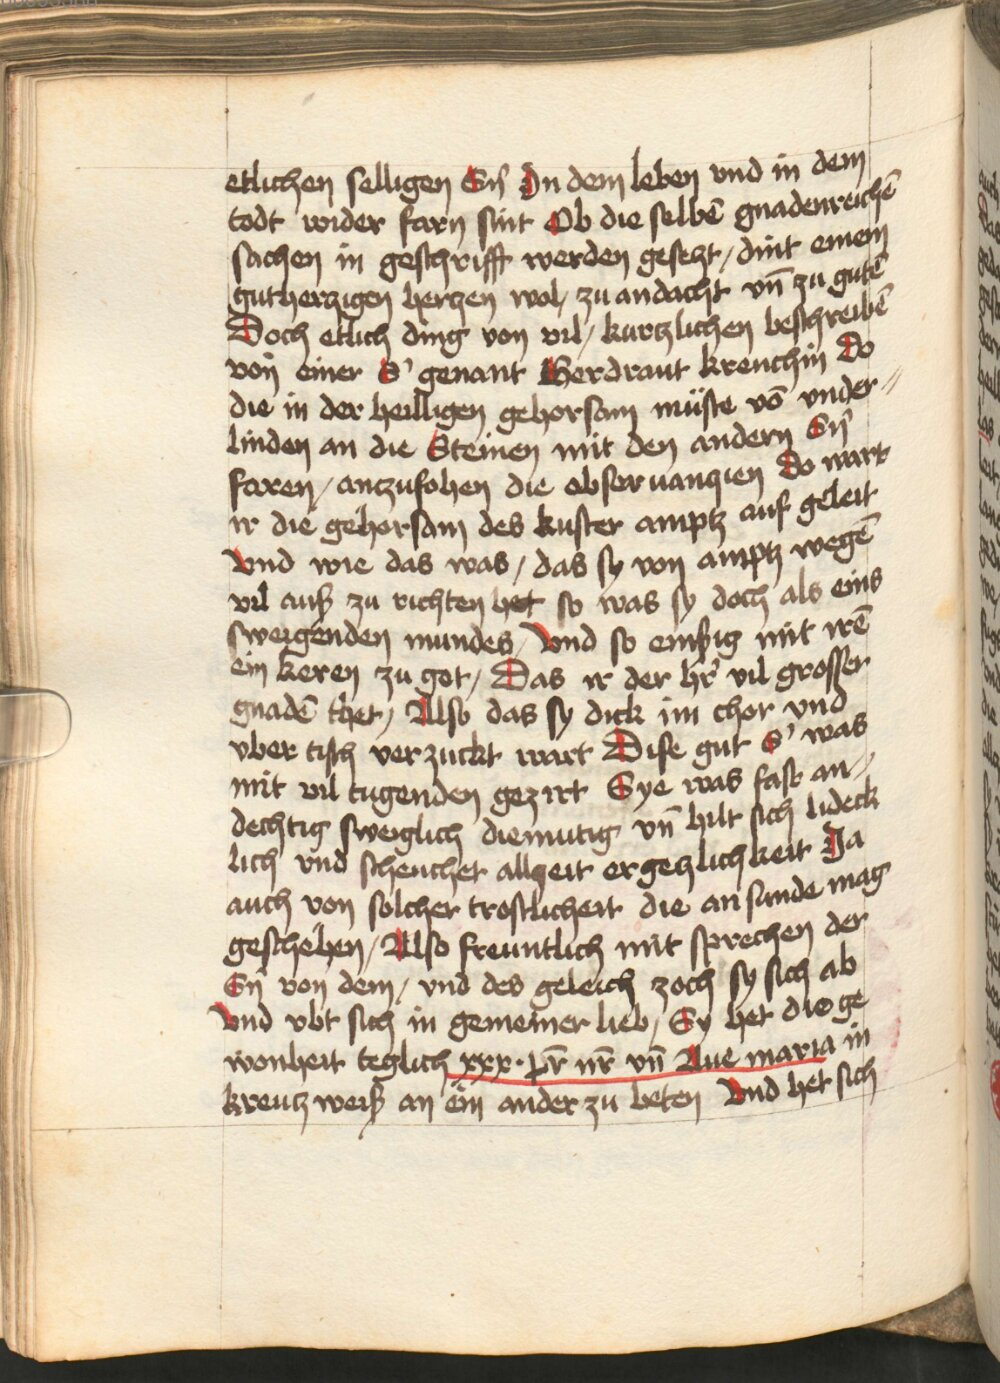 etlichen selligen Sn̄ In dem leben vnd in dem
todt wider farn sint Ob die selbē gnadenreichē
sachen in geschrifft werden gesetzt / dint einem
gutherzigen herczen wol / zu andacht vn̄ zu gutē
Doch etlich ding von vil / kurtzlichen beschreibē
von einer S' genant Gerdraut kreuchin Do
die in der heilligen gehorsam müste vō vnder=
linden an die Steinen mit den andern Sn̄
faren / anczufohen die obseruanczien Do wart
ir die gehorsam des kuster amptz auf geleit
Vnd wie das was / das sy von amptz wegē
vil auß zu richten het so was sy doch als eins
sweigenden mundes / Vnd so emßig mit irē
ein keren zu got / Das ir der hr̄ vil grosser
gnadē thet / Also das sy dick im chor vnd
vber tisch verzuckt wart Dise gut S' was
mit vil tugenden gezirt Sye was fast an=
dechtig sweiglich diemutig vn̄ hilt sich lideck
lich vnd scheuchet allzeit ergetzlichkeit Ja
auch von solcher trostlicheit die an sunde mag
geschehen / Also freuntlich mit sprechen der
Sn̄ von dem / vnd des geleich zoch sy sich ab
Vnd vbt sich in gemeiner lieb / Sy het die ge
wonheit teglich xxx · pr̄ nr̄ vn̄ Aue maria in
kreutz weiß an ein ander zu beten Vnd het sich